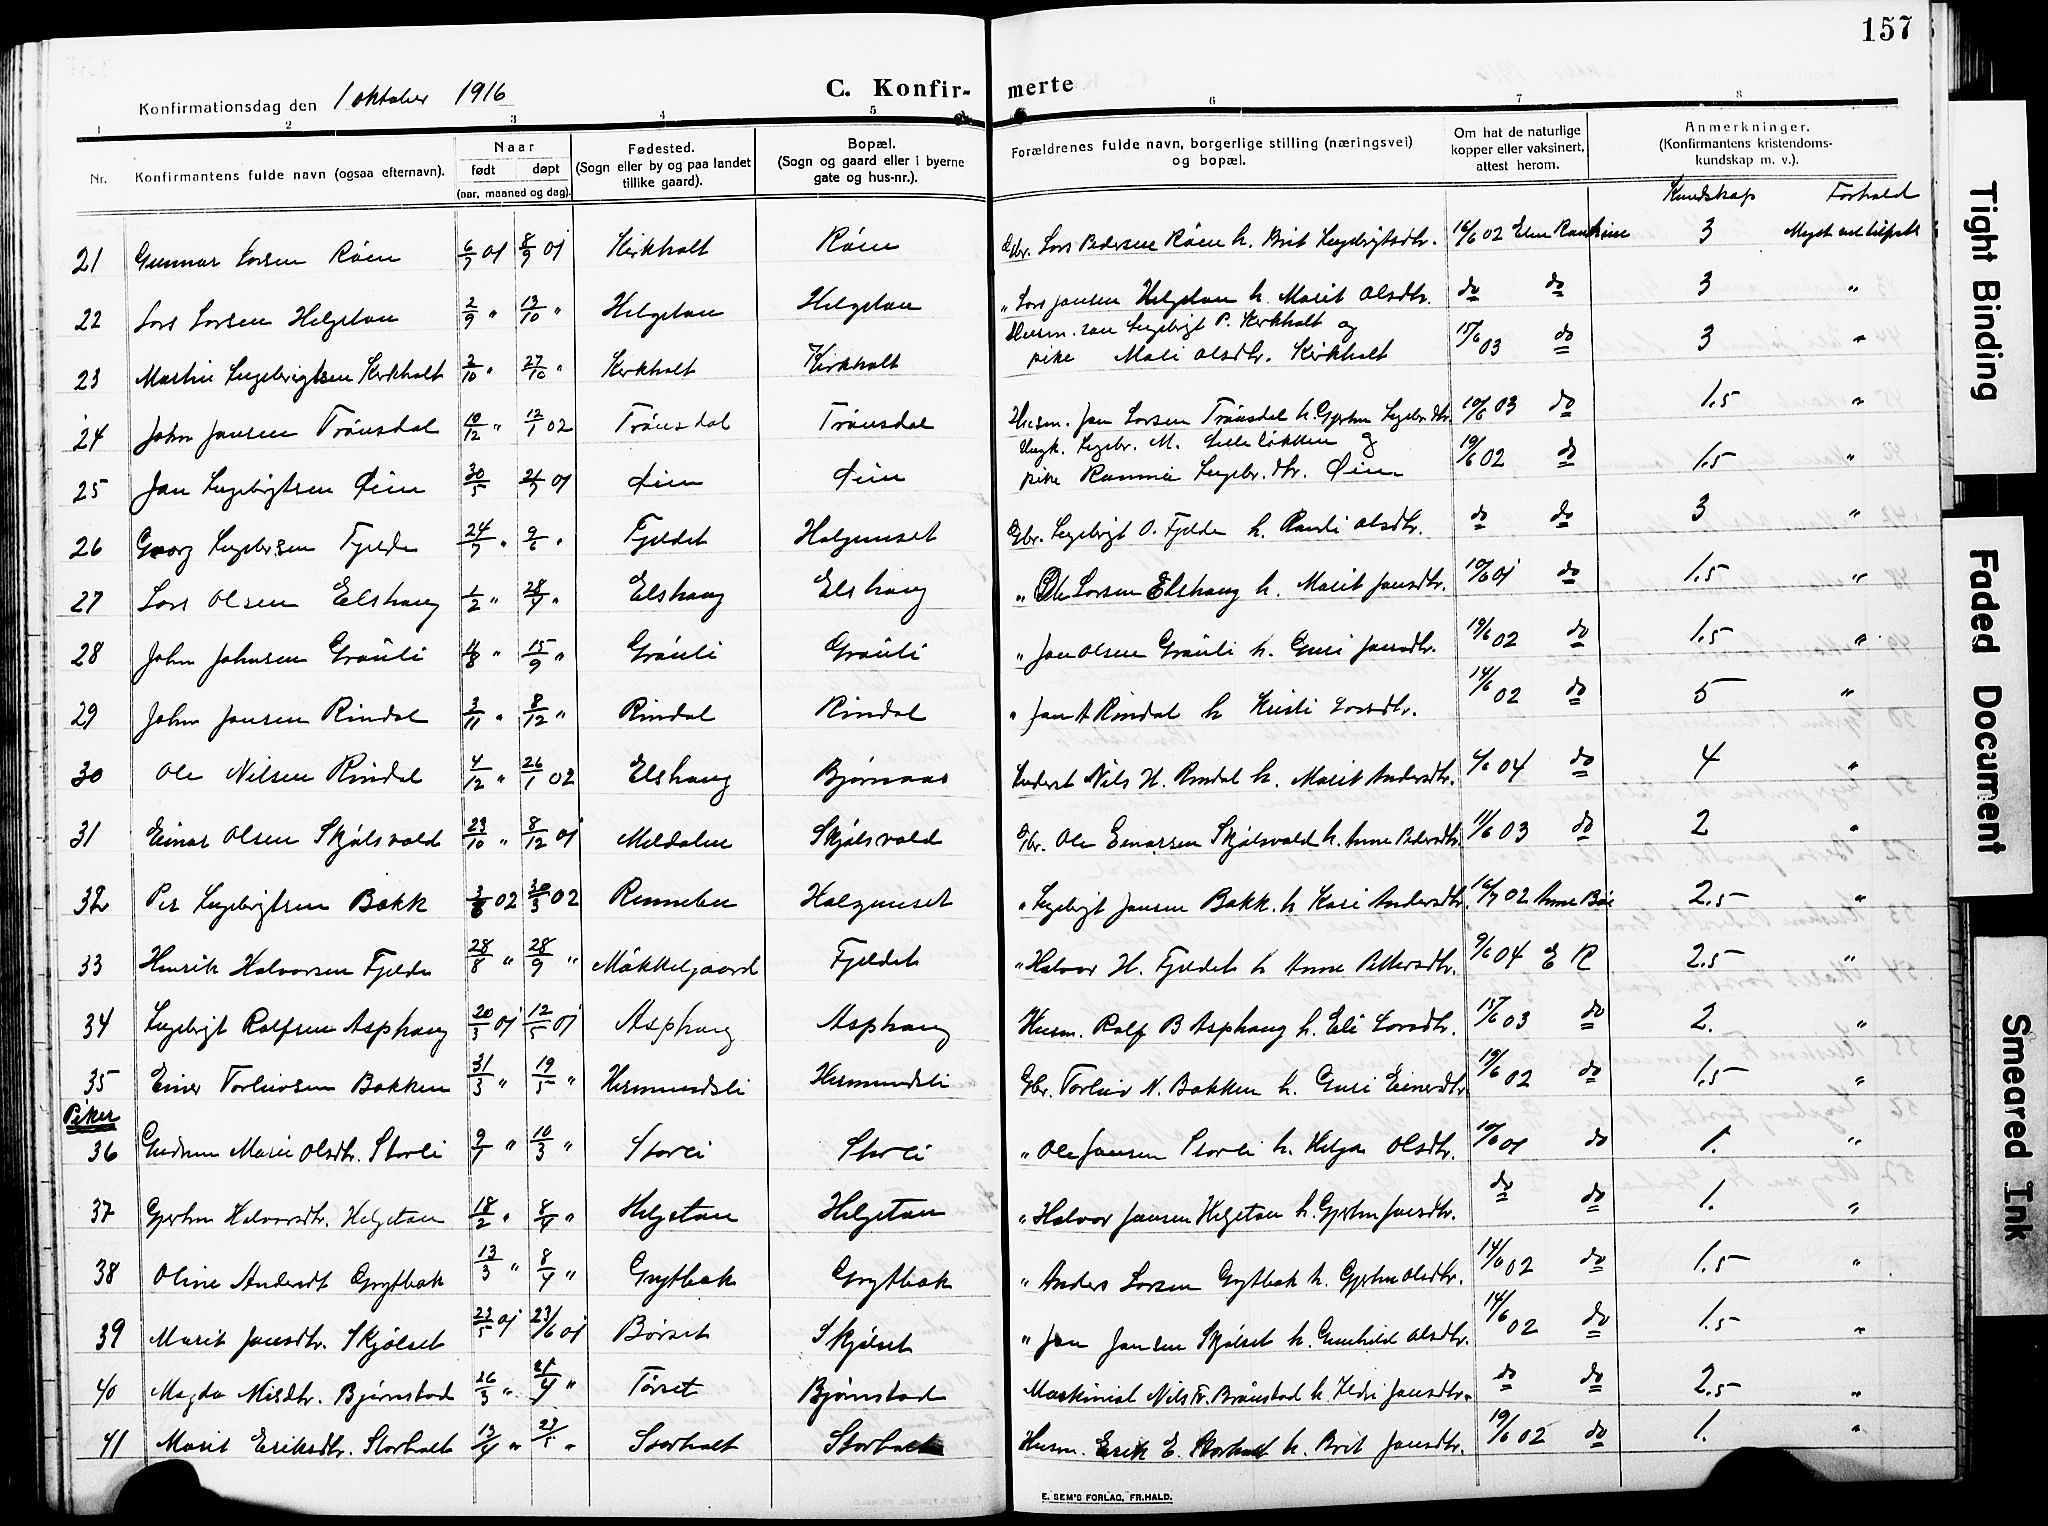 157
Konfirmationsdag den 1 oktober 1916
C. Konfirmerte
1 2 3 4 5 6 7 8
Nr. Konfirmantens fulde navn (ogsaa efternavn). Naar født døpt (aar, maaned og dag). Fødested. (Sogn eller by og paa landet tillike gaard). Bopæl. (Sogn og gaard eller i byerne gate og hus-nr.). Forældrenes fulde navn, borgerlige stilling (næringsvei) og bopæl. Om hat de naturlige kopper eller vaksinert, attest herom. Anmerkninger. (Konfirmantens kristendoms-kundskap m. v.).
Kundskap Forhold
21 Gunnar Larsen Röen 6/7 01 8/9 01 Kirkholt Röen Gbr. Lars Pedersen Röen h. Brit Ingebrigtsdtr. 16/6 02 3 Meget vel tilfreds
22 Lars Larsen Helgetun 2/9 " 13/10 " Helgetun Helgetun " Lars Jansen Helgetun h. Marit Olsdtr. do do 3 "
23 Martin Ingebrigtsen Kirkholt 2/10 " 27/10 " Kirkholt Kirkholt Ingebrigt P. Kirkholt og pike Mali Olsdtr. Kirkholt 15/6 03 do 3 "
24 John Jansen Trönsdal 10/12 " 12/1 02 Trönsdal Trönsdal Husm. Jan Larsen Trönsdal h. Gjertru Ingebr.dtr. 10/6 03 do 1.5 "
25 Jan Ingebrigtsen Öien 30/5 21/7 01 Öien Öien Ungk. Ingebr. M. Lillelökken og pike Ingebr.dtr. Öien 19/6 02 do 1.5 "
26 Georg Ingebr.sen Fjelde 24/7 " 9/6 " Fjeldet Halgunset Gbr. Ingebrigt O. Fjelde h. Randi Olsdtr. do do 3 "
27 Lars Olsen Elshaug 1/2 " 28/4 " Elshaug Elshaug " Ole Larsen Elshaug h. Marit Jansdtr. 10/6 01 do 1.5 "
28 John Johnsen Gråuli 4/8 " 15/9 " Gråuli Gråuli " Jan Olsen Gråuli h. Guri Jansdtr. 19/6 02 do 1.5 "
29 John Jansen Rindal 3/11 " 8/12 " Rindal Rindal " Jan A Rindal h Kirsti Larsdtr. 14/6 02 do 5 "
30 Ole Nilsen Rindal 4/12 " 26/1 02 Elshaug Bjørnaas Inderst Nils H. Rindal h. Marit Andersdtr. 4/6 04 do 4 "
31 Einar Olsen Skjölsvold 23/10 " 8/12 01 Meldalen Skjölsvold Gbr. Ole Einarsen Skjölsvold h. Anne Pedersdtr. 11/6 03 do 2 "
32 Per Ingebrigtsen Bakk 3/6 02 30/3 02 Rennebu Halgunset " Ingebrigt Jansen Bakk. h Kari Andersdtr. 16/7 02 Anne Böe 2.5 "
33 Henrik Halvorsen Fjelde 28/8 " 28/9 " Mökkelgaard Fjeldet " Halvor H. Fjeldet h Anne Pettersdtr. 9/6 04 E R 2.5 "
34 Ingebrigt Rolfsen Asphaug 20/3 01 12/5 01 Asphaug Asphaug Husm. Rolf B Asphaug h. Eli Larsdtr. 15/6 03 do 2. "
35 Einer Torleivsen Bakken 31/3 " 19/5 " Hermundsli Hermundsli Gbr. Torleiv N. Bakken h. Guri Einersdtr. 19/6 02 do 1.5 "
Piker
36 Gudrun Marie Olsdtr. Storli 9/1 " 10/3 " Storli Storli " Ole Jansen Storli h. Helga Olsdtr. 10/6 01 do 1. "
37 Gjertru Halvorsdtr. Helgetun 18/2 " 8/4 " Helgetun Helgetun " Halvor Jansen Helgetun h. Gjertru Jansdtr. do do 1. "
38 Oline Andersdt Grytbak 13/3 " 8/4 " Grytbak Grytbak " Anders Larsen Grytbak h. Gjertru Olsdtr. 14/6 02 do 1.5 "
39 Marit Jansdtr. Skjølset 23/5 01 23/6 01 Børset Skjølset " Jan Jansen Skjølset h. Gunhild Olsdtr. 14/6 02 do 1.5 "
40 Magda Nilsdtr. Bjørnstad 26/3 " 21/4 " Törset Bjørnstad Maskinist Nils Tr. Brönstad h. Ildri Jansdtr. do do 2.5 "
41 Marit Eriksdtr. Storholt 13/4 " 23/5 " Storholt Storholt Husm. Erik E. Storholt h. Brit Jansdtr. 19/6 02 do 1. "
E. SEM'S FORLAG, FR.HALD.
Tight Binding
Faded Document
Smeared Ink